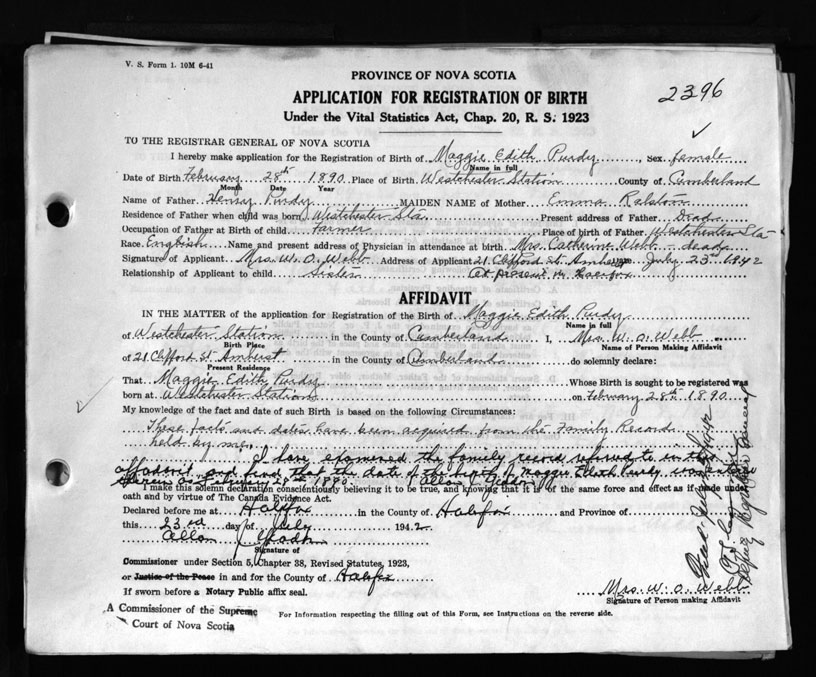 V. S. Form 1. 10M 6-41
PROVINCE OF NOVA SCOTIA
2396
APPLICATION FOR REGISTRATION OF BIRTH
Under the Vital Statistics Act, Chap. 20, R. S. 1923
✓
TO THE REGISTRAR GENERAL OF NOVA SCOTIA
I hereby make application for the Registration of Birth of Maggie Edith Purdy, sex female
Name in full
Date of Birth February 28th 1890 Place of Birth Westchester Station County of Cumberland
Month Date Year
Name of Father Henry Purdy MAIDEN NAME of Mother Emma Ralston
Residence of Father when child was born Westchester Sta. Present address of Father Dead
Occupation of Father at Birth of child farmer Place of birth of Father Westchester Sta
Race English Name and present address of Physician in attendance at birth Mrs. Catherine Webb - dead
Signature of Applicant Mrs. W. O. Webb Address of Applicant 21 Clifford St. Amherst July 23rd 1942
Relationship of Applicant to child Sister At present in Halifax
AFFIDAVIT
IN THE MATTER of the application for Registration of the Birth of Maggie Edith Purdy
Name in full
of Westchester Station in the County of Cumberland I, Mrs W. O. Webb
Birth Place Name of Person Making Affidavit
of 21 Clifford St Amherst in the County of Cumberland do solemnly declare:
Present Residence
That Maggie Edith Purdy Whose Birth is sought to be registered was
born at Westchester Station on February 28th 1890.
My knowledge of the fact and date of such Birth is based on the following Circumstances:
These facts and dates have been acquired from the Family Records
held by me.
I have examined the family record referred to in this
affadavit and find that the date of the birth of Maggie Edith Purdy was
therein as February 28th 1890. Allan
I make this solemn declaration conscientiously believing it to be true, and knowing that it is of the same force and effect as if made under
oath and by virtue of The Canada Evidence Act.
Declared before me at Halifax in the County of Halifax and Province of
this 23rd day of July 1942
Allan
Signature of
Commissioner under Section 5, Chapter 38, Revised Statutes, 1923,
or Justice of the Peace in and for the County of Halifax
If sworn before a Notary Public affix seal.
Mrs. W. O. Webb
Signature of Person making Affidavit
A Commissioner of the Supreme
Court of Nova Scotia
For Information respecting the filling out of this Form, see Instructions on the reverse side.
1942
Deputy Registrar General